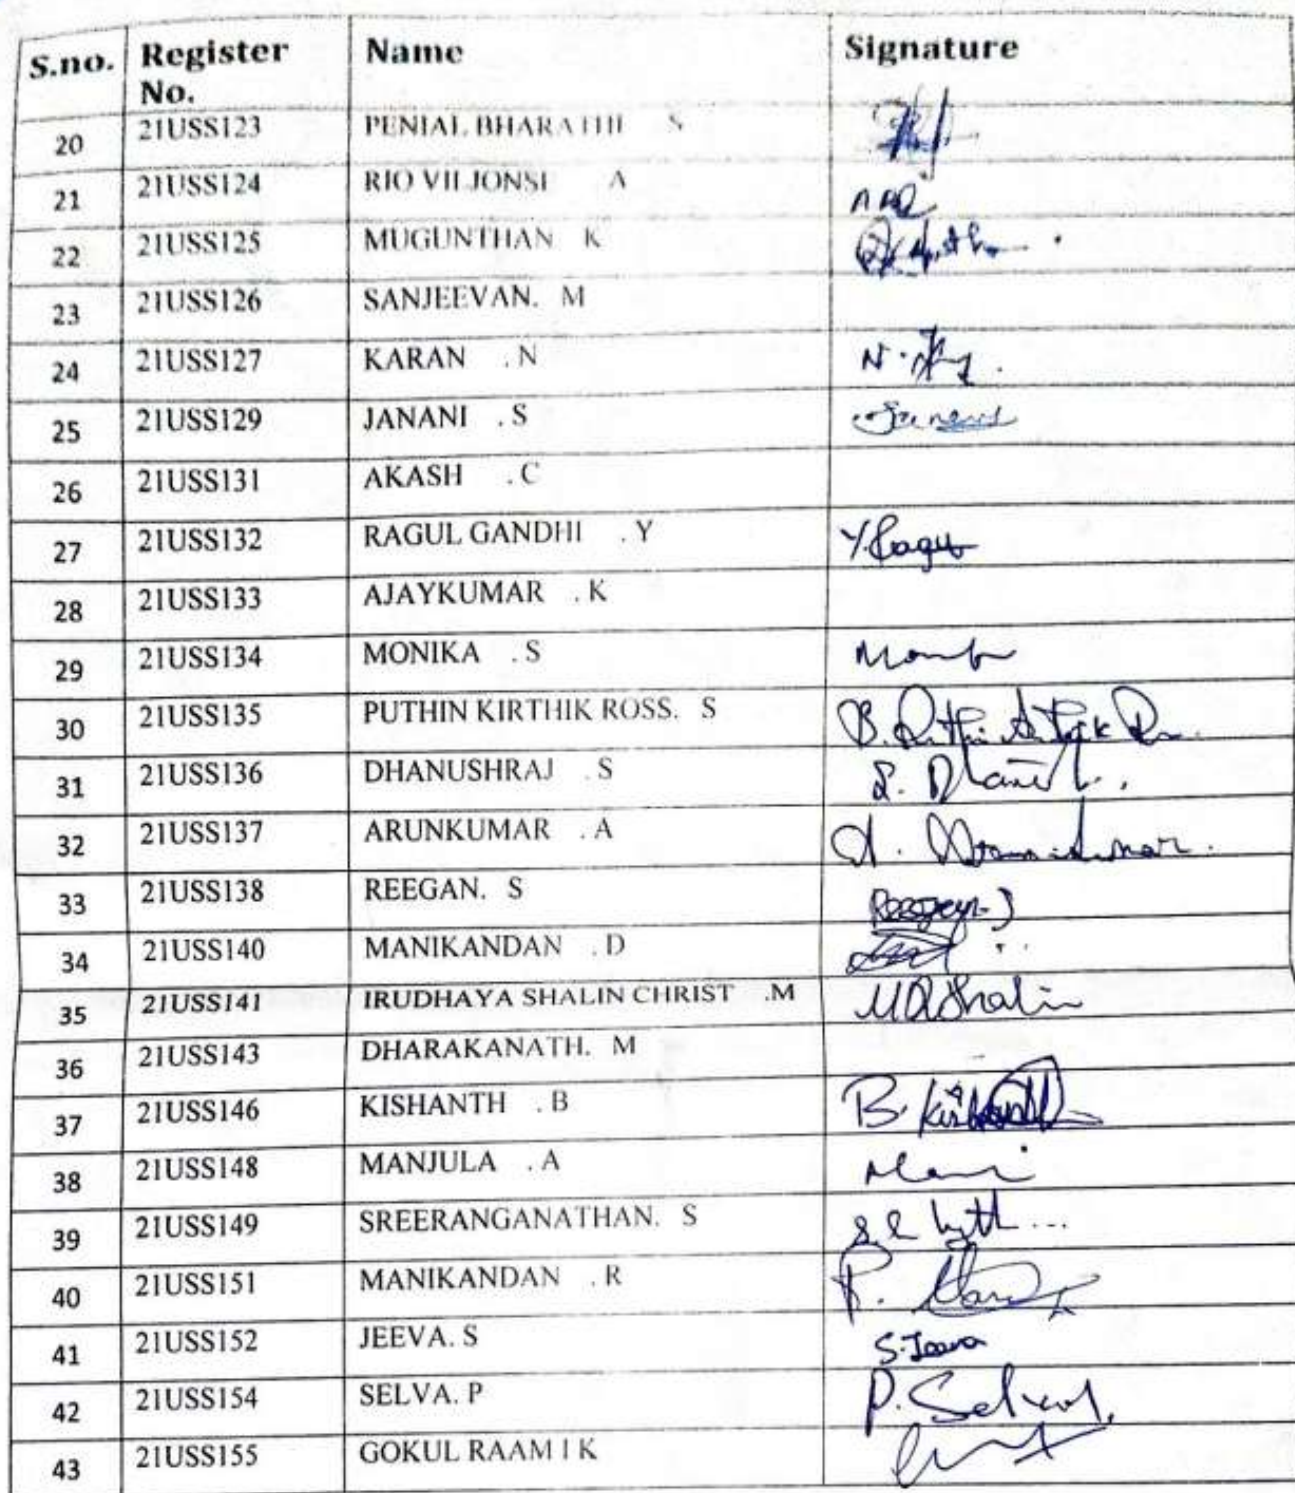 S.no. Register No. Name Signature
20 21USS123 PENIAL BHARATHI S
21 21USS124 RIO VILJONSE A
22 21USS125 MUGUNTHAN K
23 21USS126 SANJEEVAN. M
24 21USS127 KARAN .N
25 21USS129 JANANI .S
26 21USS131 AKASH .C
27 21USS132 RAGUL GANDHI .Y Y.Ragu
28 21USS133 AJAYKUMAR .K
29 21USS134 MONIKA .S
30 21USS135 PUTHIN KIRTHIK ROSS. S
31 21USS136 DHANUSHRAJ .S
32 21USS137 ARUNKUMAR .A
33 21USS138 REEGAN. S
34 21USS140 MANIKANDAN .D
35 21USS141 IRUDHAYA SHALIN CHRIST .M
36 21USS143 DHARAKANATH. M
37 21USS146 KISHANTH .B
38 21USS148 MANJULA .A
39 21USS149 SREERANGANATHAN. S
40 21USS151 MANIKANDAN .R
41 21USS152 JEEVA. S S.Jeeva
42 21USS154 SELVA. P
43 21USS155 GOKUL RAAM I K